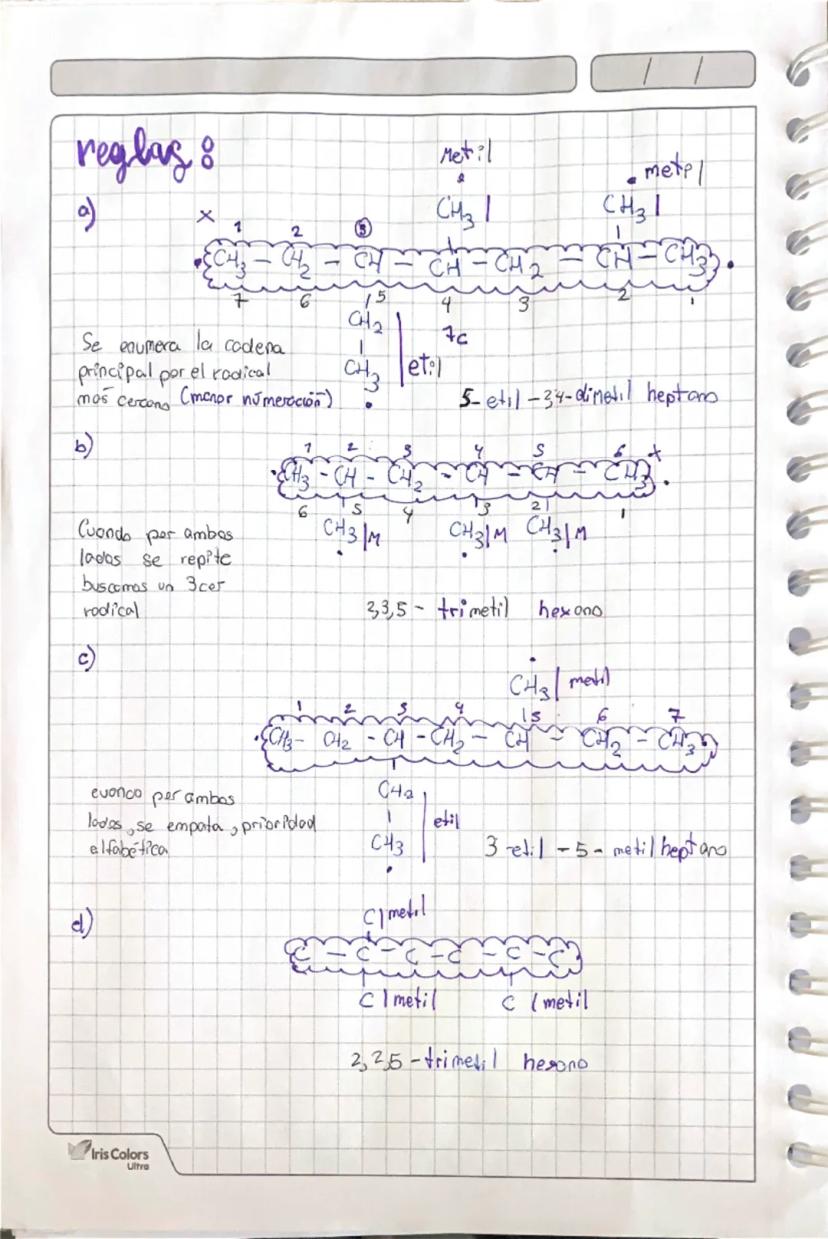 / /
reglas:
Metil
. metpl
a)
x
CH3 |
CH3 |
1 2 3
CH3 – CH2 – CH – CH – CH2 – CH – CH3
7 6 5 4 3 2 1
CH2
7c
Se enumera la cadena
principal por el radical
CH3 | etil
mas cercano (menor númeroción)
5- etil –34-dimetil heptano
b)
1 2 3 4 5 6 x
CH3 – CH – CH2 – CH – CH – CH3
6 5 4 3 2 1
CH3|M CH3|M CH3|M
Cuando por ambos
lados se repite
buscamos un 3cer
radical
2,3,5 – trimetil hexano
c)
CH3| metil
1 2 3 4 5 6 7
CH3 – CH2 – CH – CH2 – CH – CH2 – CH3
cuanco por ambos
CH2
lados, se empata, prioridad
etil
alfabética
CH3
3 etil – 5 – metil heptano
d)
C| metil
C – C – C – C – C – C
C | metil C | metil
2,2,5 – trimetil hexano
Iris Colors
Ultra